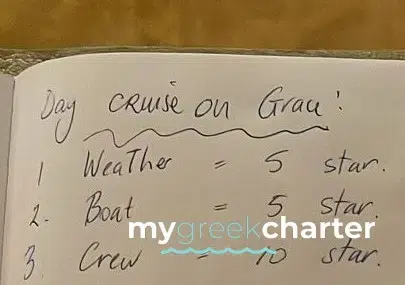 Day cruise on Grace!
1 Weather = 5 star.
2. Boat = 5 star.
mygreekcharter
3. Crew = 10 star.